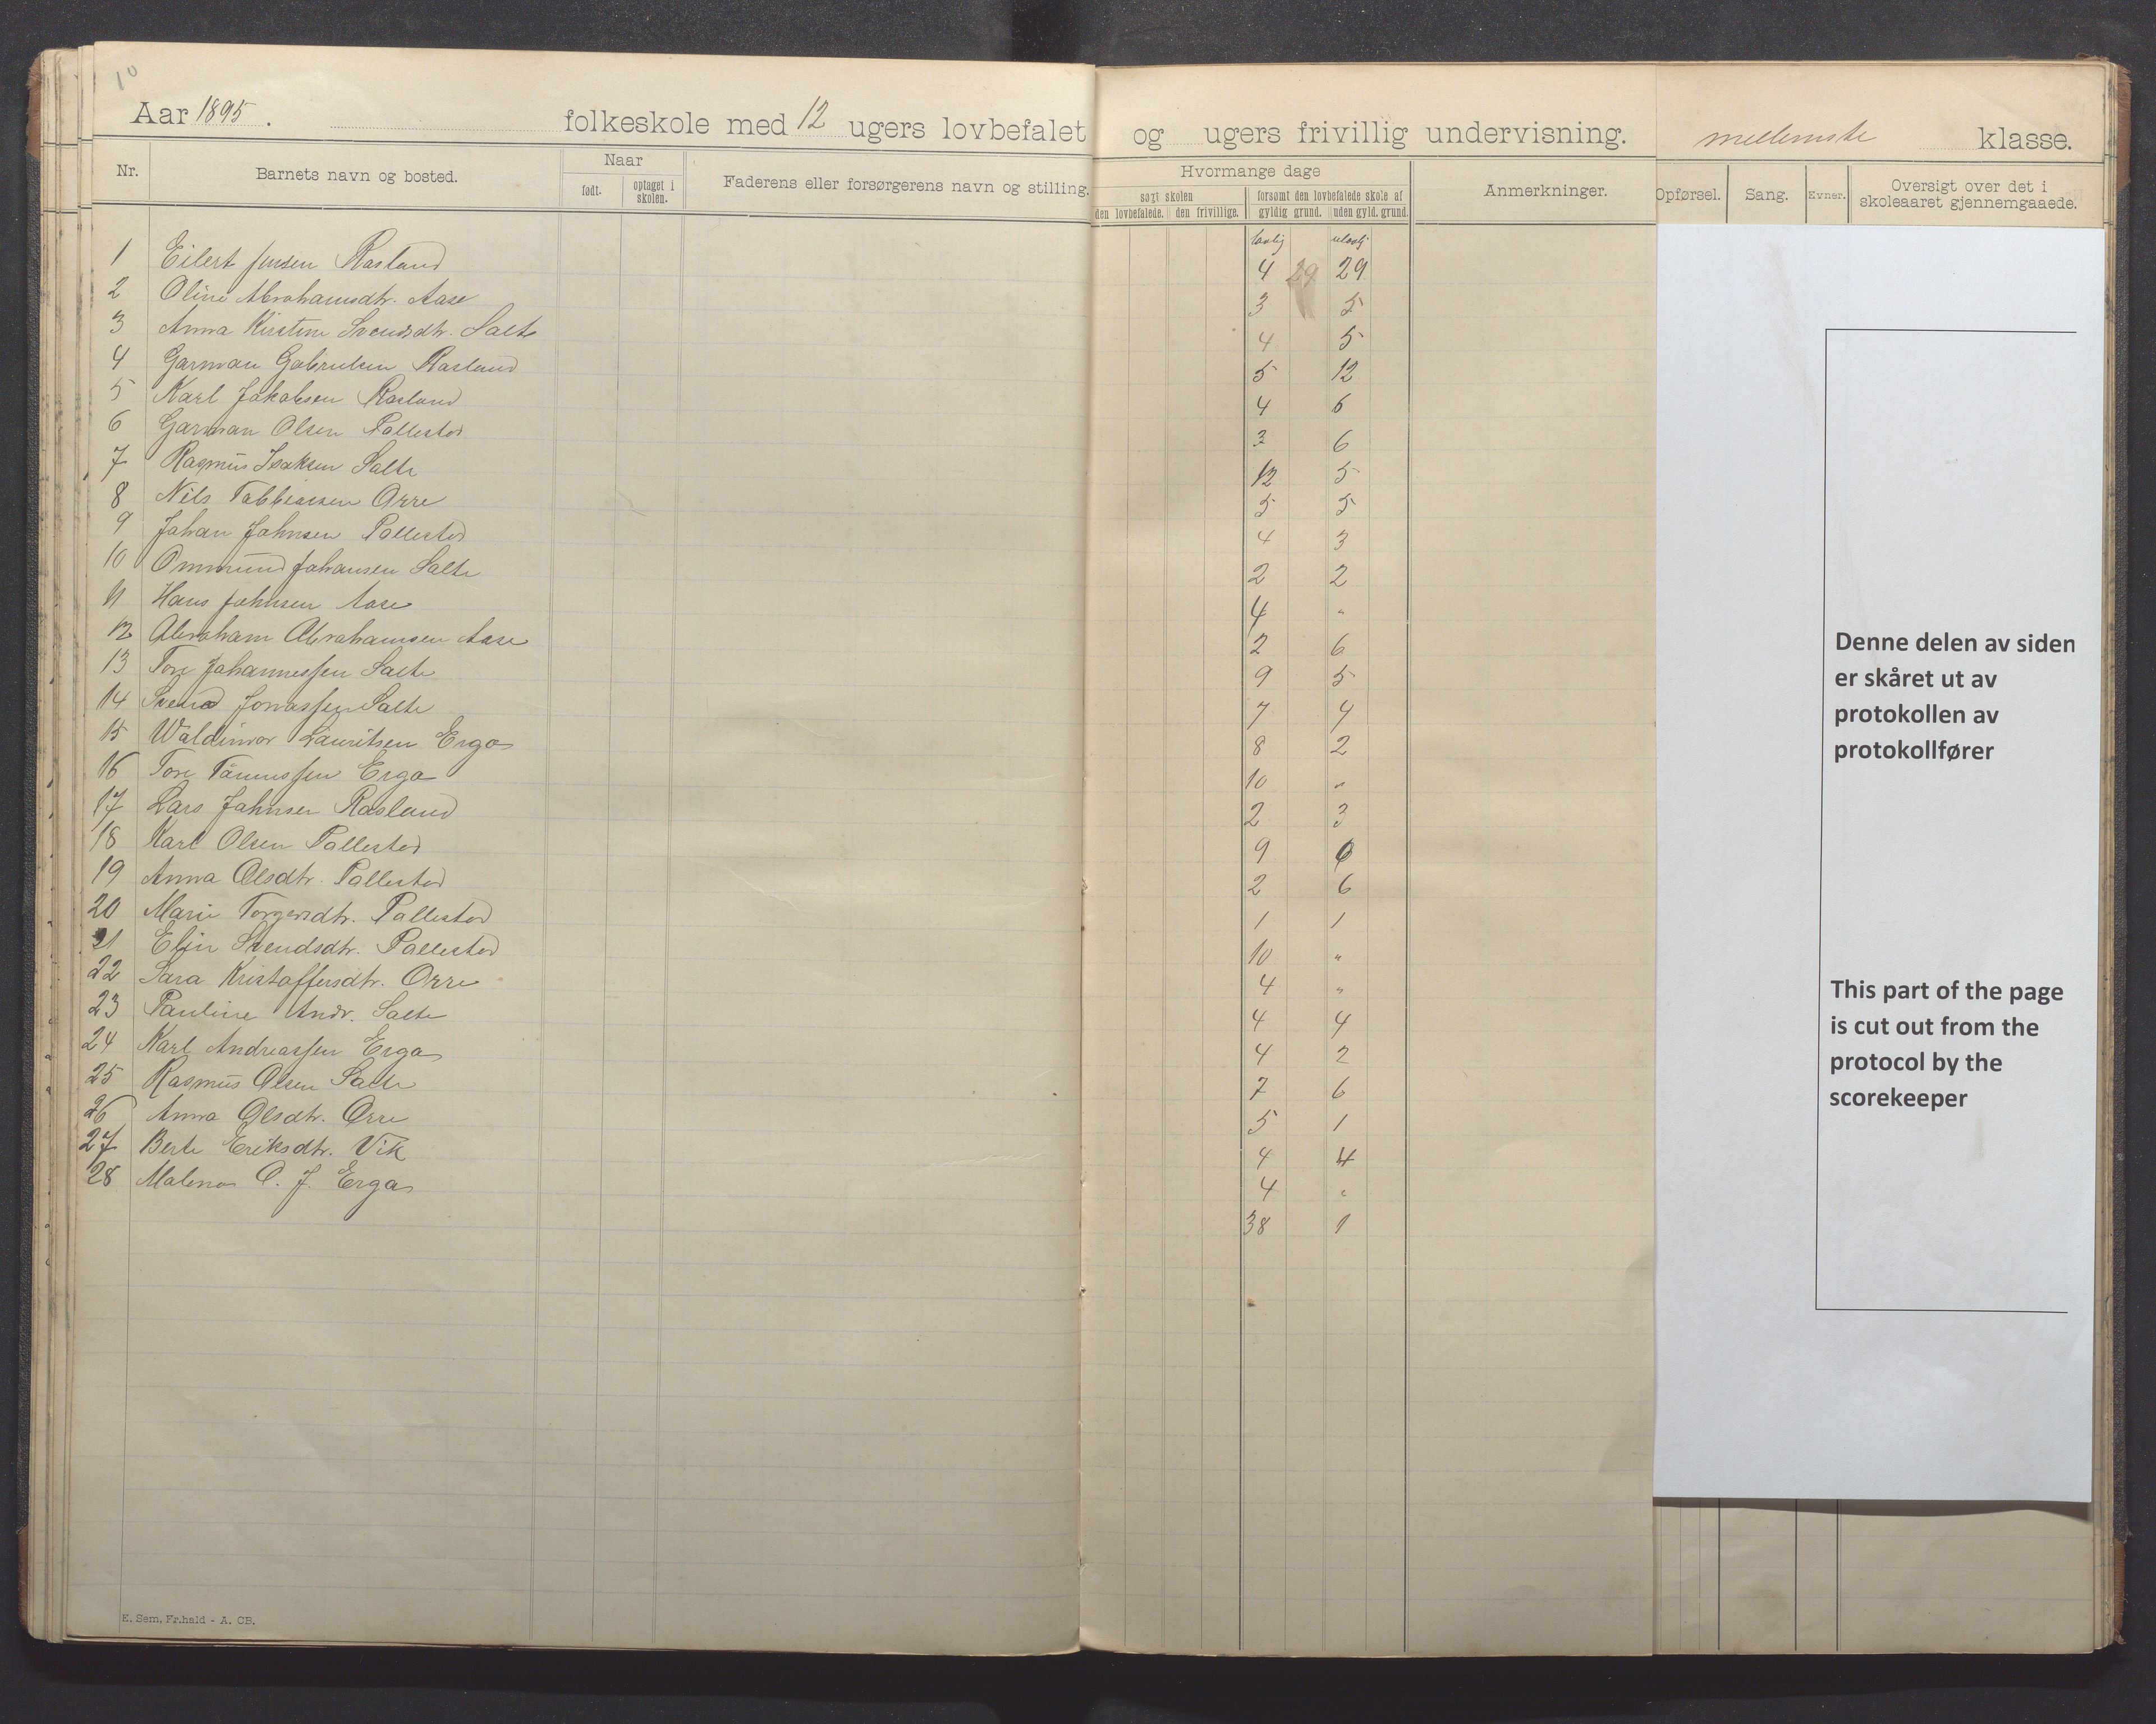 10
Aar 1895. folkeskole med 12 ugers lovbefalet og ugers frivillig undervisning. mellemste klasse.
Nr. Barnets navn og bosted. Naar født. optaget i skolen. Faderens eller forsørgerens navn og stilling. Hvormange dage søgt skolen den lovbefalede. den frivillige. forsømt den lovbefalede skole af gyldig grund. uden gyld. grund. Anmerkninger. Opførsel. Sang. Evner. Oversigt over det i skoleaaret gjennemgaaede.
lovlig ulovlig
1 Eilert Jensen Rasland 4 29 29
2 Oline Abrahamsdtr. Aase 3 5
3 Anna Kirstine Svendsdtr. Salte 4 5
4 Garman Gabrielsen Rasland 5 12
5 Karl Jakobsen Rasland 4 6
6 Garman Olsen Pallestad 3 6
7 Rasmus Isaksen Salte 12 5
8 Nils Tobbiassen Orre 5 5
9 Johan Johnsen Pollestad 4 3
10 Ommund Johansen Salte 2 2
11 Hans Johnsen Aase 4 "
12 Abraham Abrahamsen Aase 2 6
13 Tore Johannessen Salte 9 5
14 Svend Jonassen Salte 7 4
15 Waldimar Lauritsen Erga 8 2
16 Tore Tønnessen Erga 10 "
17 Lars Johnsen Rasland 2 3
18 Karl Olsen Pallestad 9 6
19 Anna Olsdtr. Pallestad 2 6
20 Marie Torgersdtr. Pallestad 1 1
21 Elin Svendsdtr. Pallestad 10 "
22 Sara Kristoffersdtr. Orre 4 "
23 Pauline Andr. Salte 4 4
24 Karl Andreassen Erga 4 2
25 Rasmus Olsen Salte 7 6
26 Anna Olsdtr. Orre 5 1
27 Berte Eriksdtr. Vik 4 4
28 Malena O. J. Erga 4 "
38 1
E. Sem, Fr.hald - A. CB.
Denne delen av siden
er skåret ut av
protokollen av
protokollfører
This part of the page
is cut out from the
protocol by the
scorekeeper